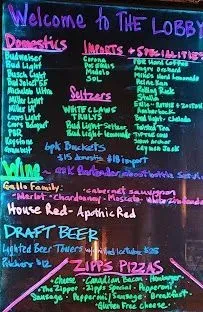 Welcome to THE LOBBY
Domestics
Budweiser
Bud Light
Busch Light
Bud Select 55
Michelob Ultra
Miller Light
Miller 64
Coors Light
Coors Banquet
PBR
Keystone
Grain Belt
IMPORTS + SPECIALTIES
Corona
Dos Equis
Modelo
SOL
Seltzers
WHITE CLAWS
TRULYS
Bud Light - Seltzer
Bud Light Lemonade
PBR Hard Coffee
Angry Orchard
Mike's Hard Lemonade
Heineken
Rolling Rock
Stella
Bud Light - Chelada
Twisted Tea
6pk Buckets
$15 domestic $18 import
Wine
ASK Bartender about bottle
Gallo Family: Cabernet Sauvignon
Merlot - Chardonnay - Moscato - White Zinfandel
House Red - Apothic Red
DRAFT BEER
Lighted Beer Towers w/ Ice Tube $25
Pitchers $12
ZIPPS PIZZAS
Cheese - Canadian Bacon - Hamburger
The Zipper - Zipps Special - Pepperoni
Sausage - Pepperoni/Sausage - Breakfast
Gluten Free Cheese